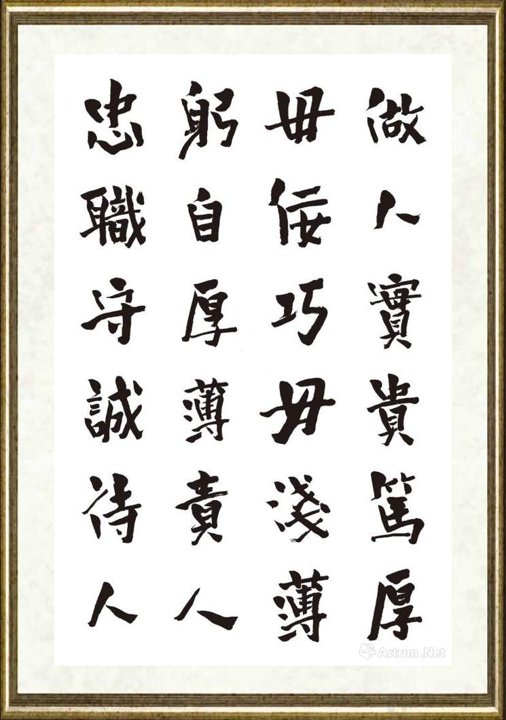 做人實貴篤厚
毋佞巧毋淺薄
躬自厚薄責人
忠職守誠待人
Artron.Net